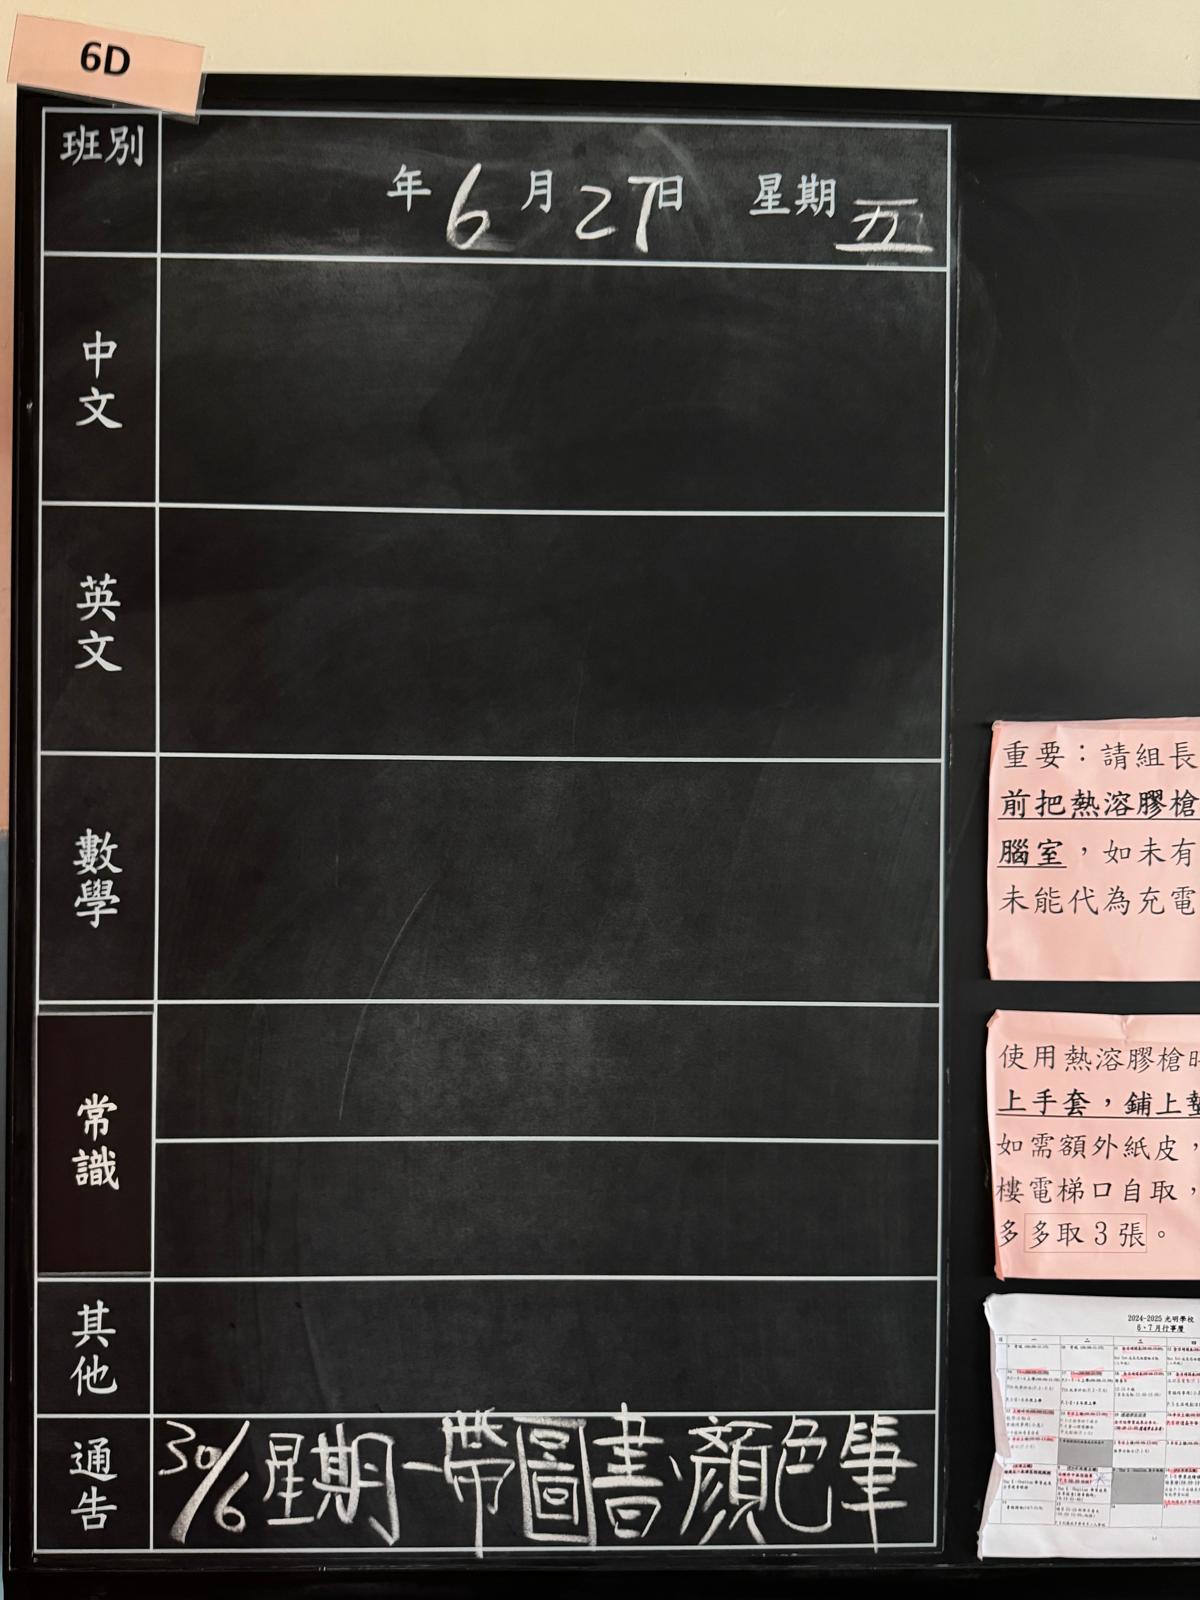 6D
班別
年 6 月 27 日 星期 五
中文
英文
數學
常識
其他
通告
30/6 星期一帶圖書、顏色筆
重要：請組長
前把熱溶膠槍
腦室，如未有
未能代為充電
使用熱溶膠槍時
上手套，鋪上墊
如需額外紙皮，
樓電梯口自取，
多多取3張。
2024-2025 光明學校
6、7月行事曆
一 二 三 四